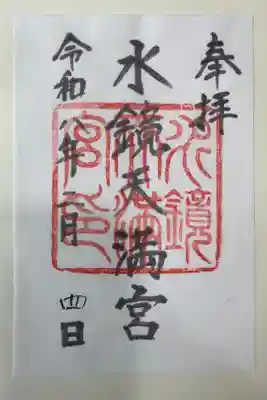 奉拝
水鏡天満宮
水鏡
天満
宮印
令和八年二月
四日